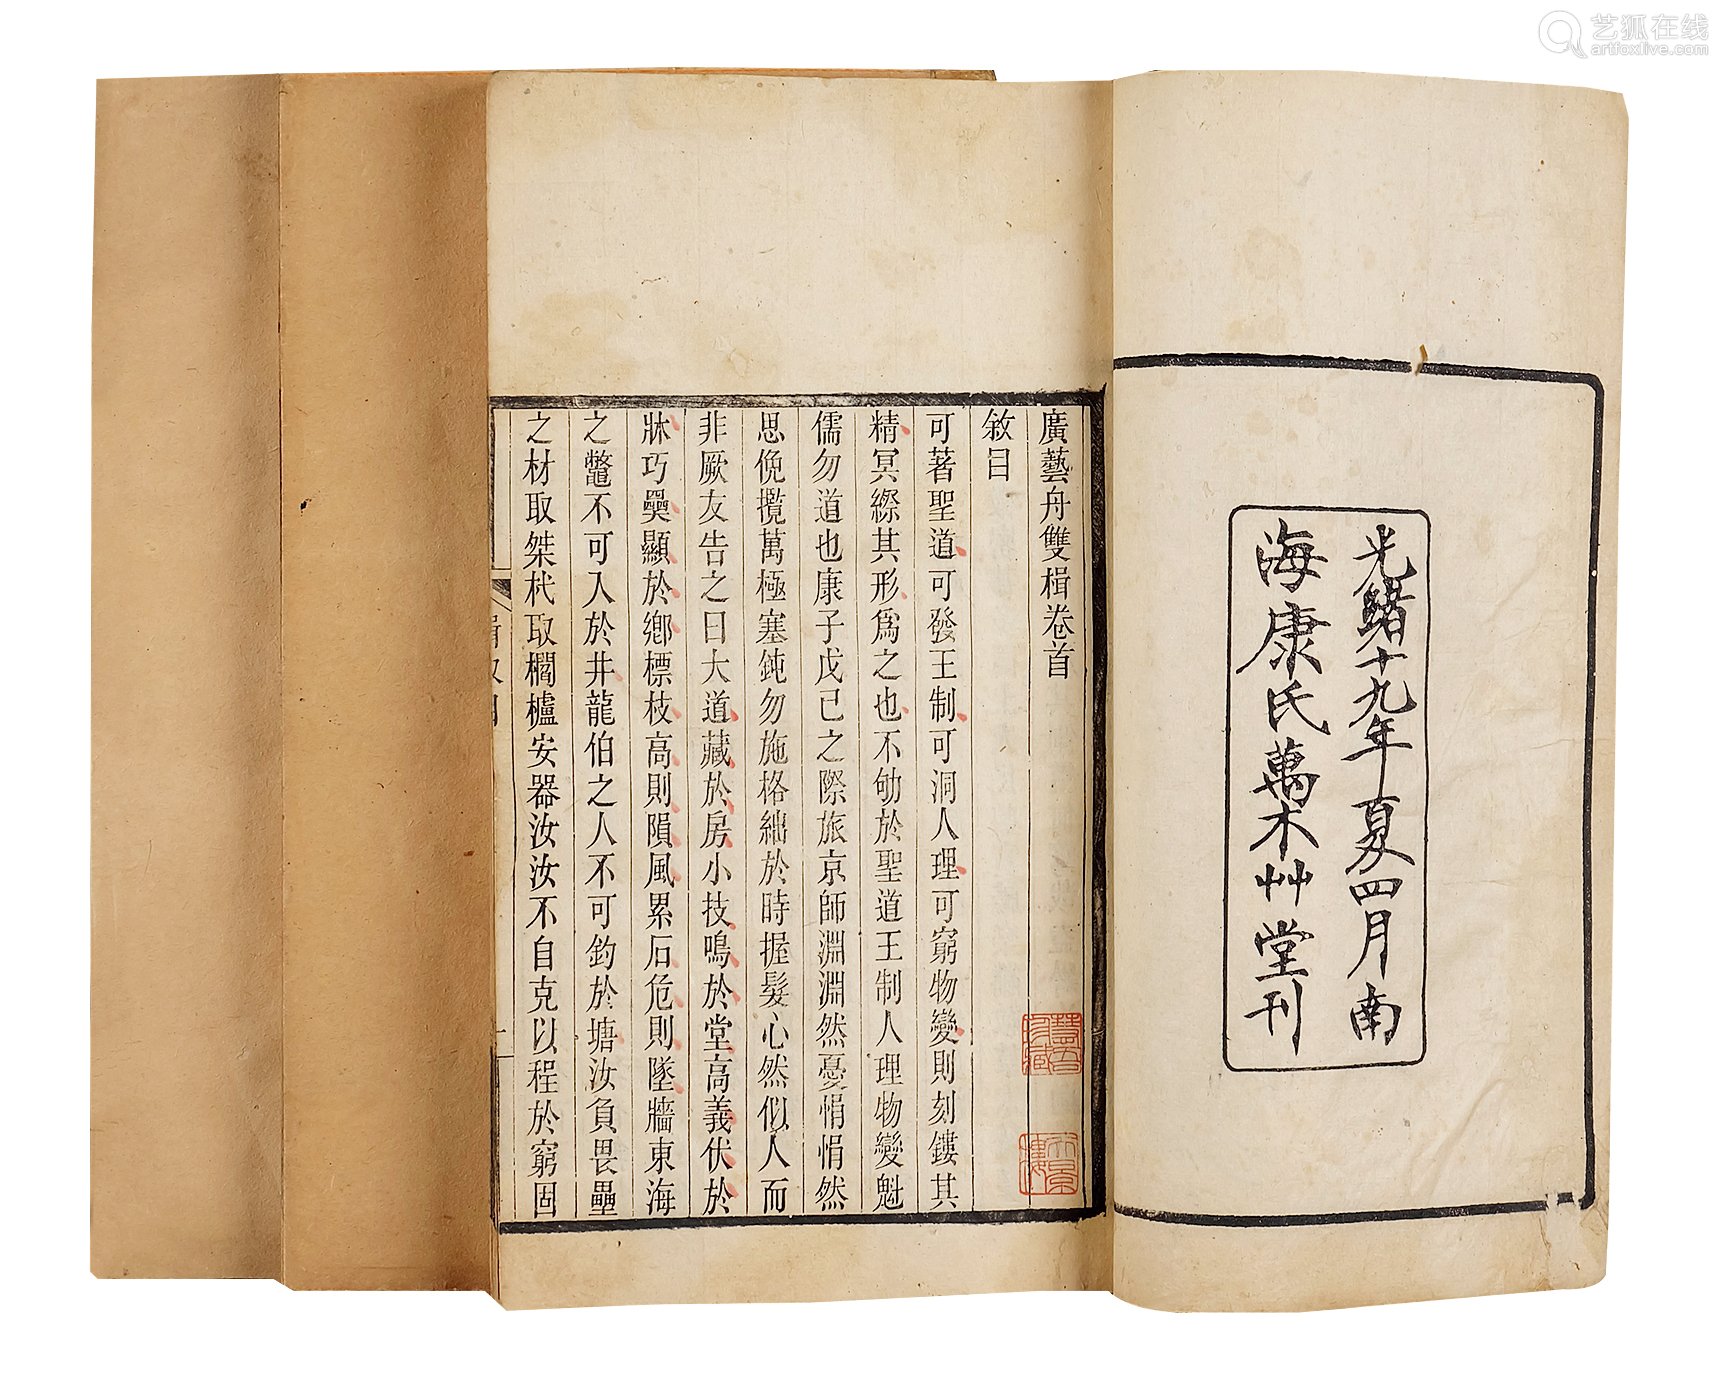 艺狐在线
artfoxlive.com
光緒十九年夏四月南
海康氏萬木艸堂刊
廣藝舟雙楫卷首
敘目
可著聖道可發王制可洞人理可窮物變則刻鏤其
精冥縩其形為之也不劬於聖道王制人理物變魁
儒勿道也康子戊己之際旅京師淵淵然憂悁悁然
思俛攬萬極塞鈍勿施格絀於時握髮心然似人而
非厥友告之曰大道藏於房小技鳴於堂高義伏於
牀巧奰顯於鄉標枝高則隕風累石危則墜牆東海
之鼈不可入於井龍伯之人不可釣於塘汝負畏壘
之材取桀杙取櫚櫨安器汝汝不自克以程於窮固